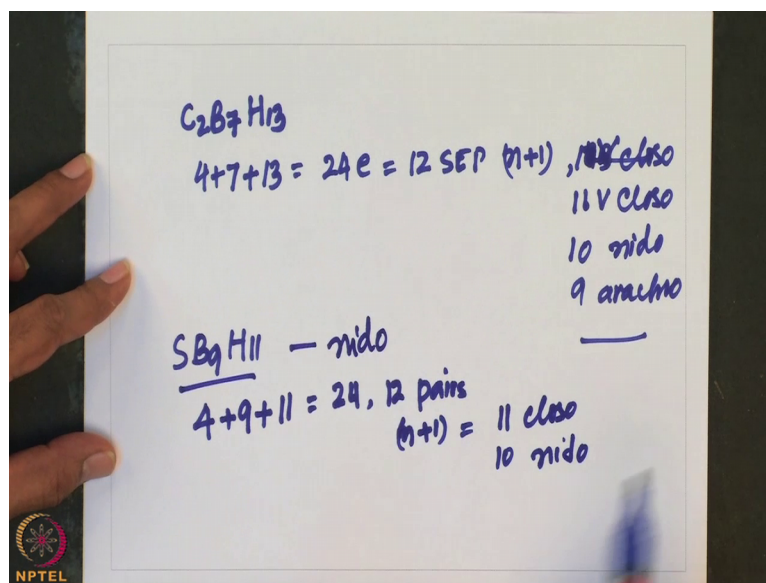 C2B7H13
4+7+13 = 24e = 12 SEP (n+1) , closo
11 V closo
10 nido
9 arachno
SB9H11 — nido
4+9+11 = 24, 12 pairs
(n+1) = 11 closo
10 nido
NPTEL